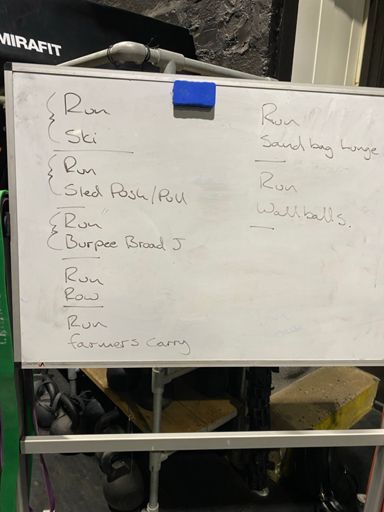 MIRAFIT
Run
Ski
Run
Sled Push/Pull
Run
Burpee Broad J
Run
Row
Run
farmers carry
Run
Sand bag lunge
Run
Wallballs.